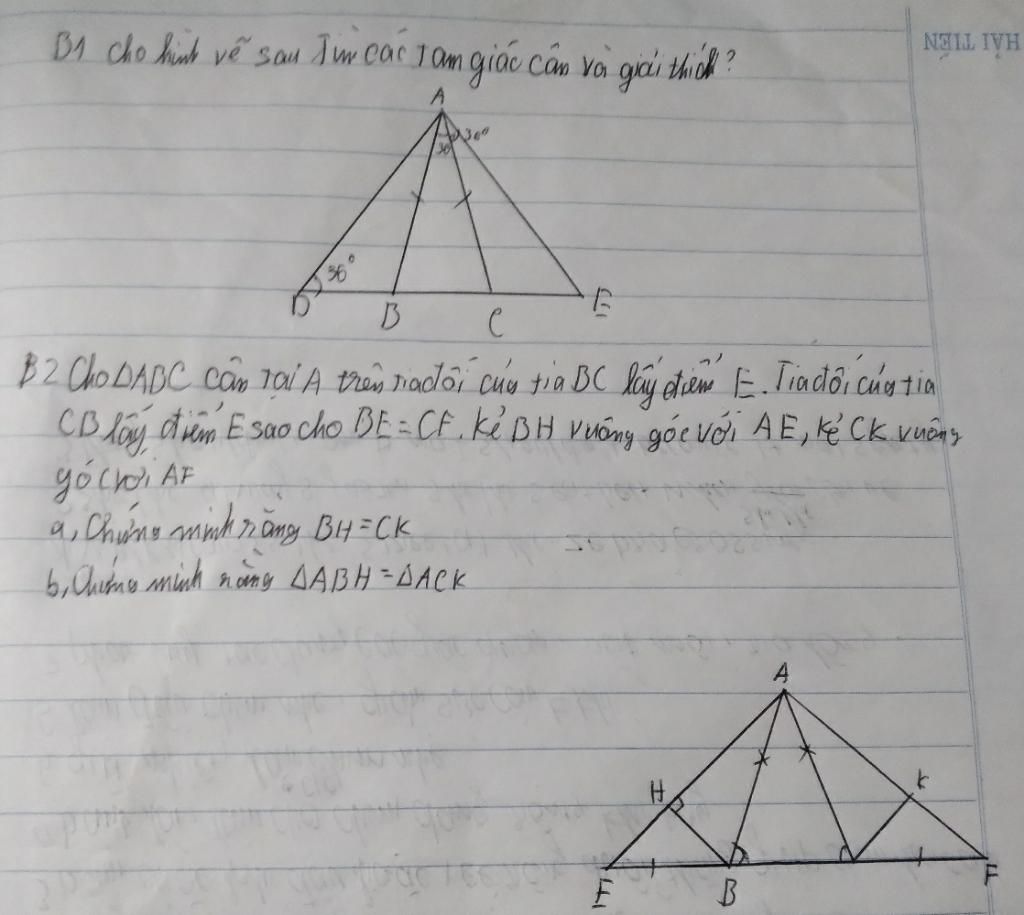 HẢI TIẾN
B1 Cho hình vẽ sau Tìm các Tam giác cân và giải thích?
A
30°
36
36°
D
B
C
E
B2 Cho ΔABC cân Tại A trên tia đối của tia BC lấy điểm E. Tia đối của tia
CB lấy điểm E sao cho BE=CF. Kẻ BH vuông góc với AE, kẻ CK vuông
góc với AF
a, Chứng minh rằng BH=CK
b, Chứng minh rằng ΔABH=ΔACK
A
H
K
E
B
F